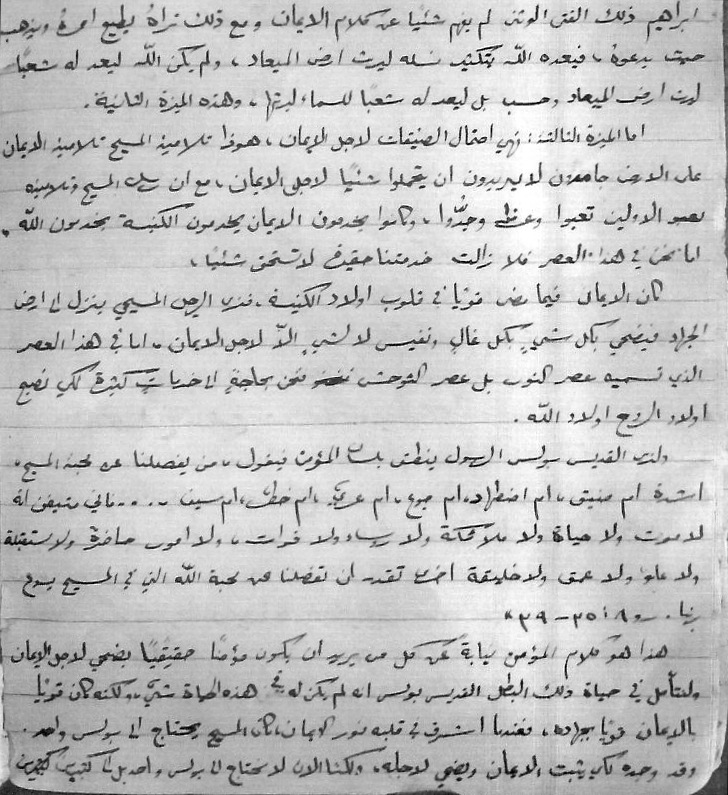 ابراهيم ذلك الفتى الوثني لم يفهم شئيا عن كلام الايمان ومع ذلك نراهُ يطيع امرهُ ويذهب
حيث يدعوهُ، فيعده اللّه بتكثير نسله ليرث ارض الميعاد، ولم يكن اللّه ليعد له شعبًا
ليرث ارض الميعاد وحسب بل ليعد له شعبًا للسماء ليرثها، وهذه الميزة الثانية.
اما الميزة الثالثة: فهي احتمال الضيقات لاجل الايمان، هوذا تلاميذ المسيح تلاميذ الايمان
على الارض جامدون لا يريدون ان يتحملوا شئيًا لاجل الايمان، مع ان المسيح وتلاميذه
الاولين تعبوا وجدُّوا، وكانوا يخدمون الايمان يخدمون الكنيسة يخدمون اللّه.
اما نحن في هذا العصر فلا زالت خدمتنا حقيرة لا تستحق شئيًا،
كان الايمان فيما مضى قويًا في قلوب اولاد الكنيسة، فنرى الرجل المسيحي ينزل الى ارض
الجهاد فيضحي بكل شيءٍ بكل غالٍ ونفيس لا لشيءٍ الاّ لاجل الايمان، اما في هذا العصر
الذي نسميه عصر النور بل عصر التوحش نحن بحاجةٍ الى تضحيات كثيرة لكي نصبح
اولاد الروح اولاد اللّه.
ولنرى القديس بولس الرسول ينطق بلسان المؤمن فيقول، من يفصلنا عن محبة المسيح،
اشدة ام ضيق، ام اضطهاد، ام جوع، ام عري، ام خطر، ام سيف .... فاني متيقن انه
لا موت ولا حياة ولا ملائكة ولا رؤساء ولا قوات، ولا امور حاضرة ولا مستقبلة
ولا علو ولا عمق ولا خليقة اخرى تقدر ان تفصلنا عن محبة اللّه التي في المسيح يسوع
ربنا. رو ٨: ٣٥ - ٣٩ "
هذا هو كلام المؤمن نيابةً عن كل من يريد ان يكون مؤمنًا حقيقيًا يضحي لاجل الايمان
ولنتأمل في حياة ذلك البطل القديس بولس انه لم يكن له في هذه الحياة شيء، ولكنه كان قويًا
بالايمان قويًا بجهاده، فعندما اشرق في قلبه نور الايمان، كان المسيح يحتاج الى بولس واحد.
وقد وجده لكي يثبت الايمان ويضحي لاجله، ولكننا الان لا نحتاج الى بولس واحد بل الى كثيرين